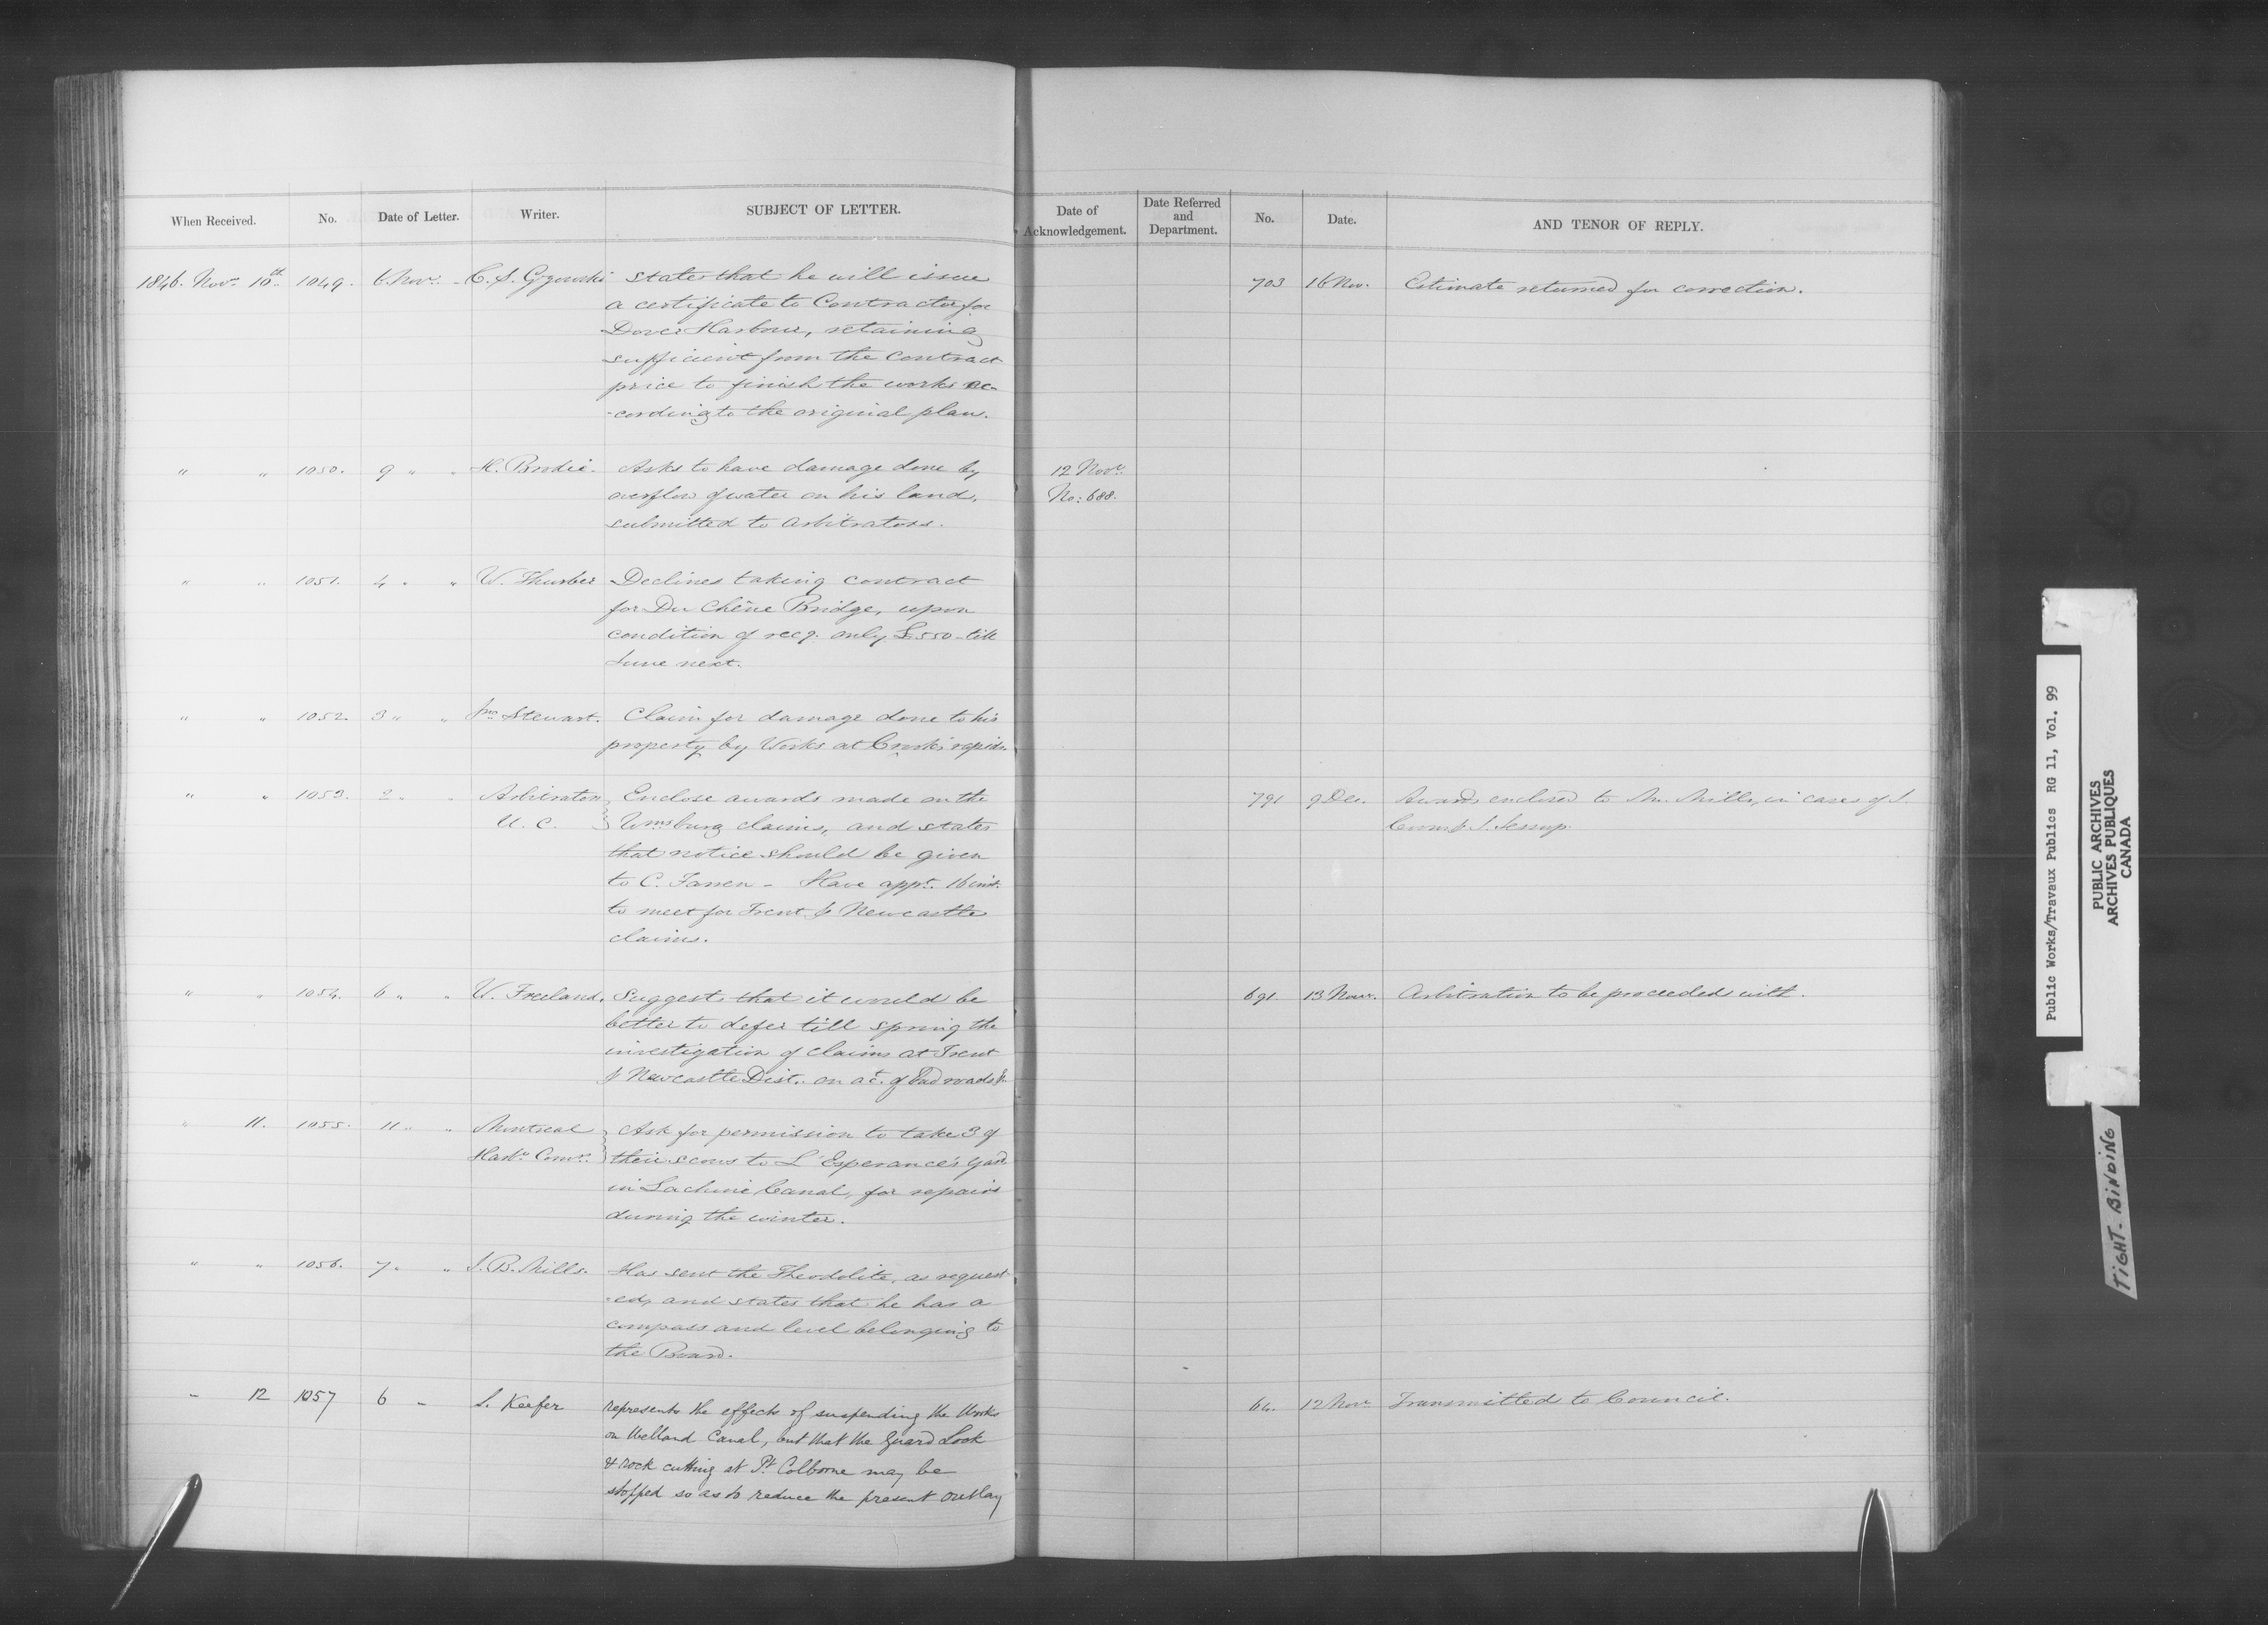 When Received. No. Date of Letter. Writer. SUBJECT OF LETTER.
Date of Acknowledgement. Date Referred and Department. No. Date. AND TENOR OF REPLY.
1846. Novr. 10th. 1049. 6 Novr. C. S. Gzowski States that he will issue
a certificate to Contractor for
Dover Harbour, retaining
sufficient from the contract
price to finish the works ac-
-cording to the original plan.
703 16 Nov. Estimate returned for correction.
" " 1050. 9 " " H. Brodie. Asks to have damage done by
overflow of water on his land,
submitted to arbitrators.
12 Novr.
No: 688.
" " 1051. 4 " " W. Thurber Declines taking contract
for Du Chêne Bridge, upon
condition of recg. only £550 - till
June next.
" " 1052. 3 " " Jno. Stewart. Claim for damage done to his
property by Works at Crooks' rapids.
" " 1053. 2 " " Arbitrators Enclose awards made on the
U. C. Wmsburg claims, and states
that notice should be given
to C. Farren - Have appt. 16 inst.
to meet for Trent & Newcastle
claims.
791 9 Dec. Awards enclosed to Mr. Mills, in cases of
& J. Jessup.
" " 1054. 6 " " W. Freeland. Suggests that it would be
better to defer till spring the
investigation of claims at Trent
& Newcastle Dist. on act. of bad roads &
691. 13 Novr. Arbitration to be proceeded with.
" 11. 1055. 11 " " Montreal Ask for permission to take 3 of
Harbr. Comrs. their scows to L'Esperance's yard
in Lachine Canal, for repairs
during the winter.
" " 1056. 7 " " J. B. Mills. Has sent the Theodolite, as request-
-ed, and states that he has a
compass and level belonging to
the Board.
" 12 1057 6 " S. Keefer represents the effects of suspending the Works
on Welland Canal, but that the guard Lock
& rock cutting at Pt. Colborne may be
stopped so as to reduce the present outlay
64. 12 Novr. Transmitted to Council.
Public Works/Travaux Publics RG 11, Vol. 99
PUBLIC ARCHIVES
ARCHIVES PUBLIQUES
CANADA
TIGHT-BINDING